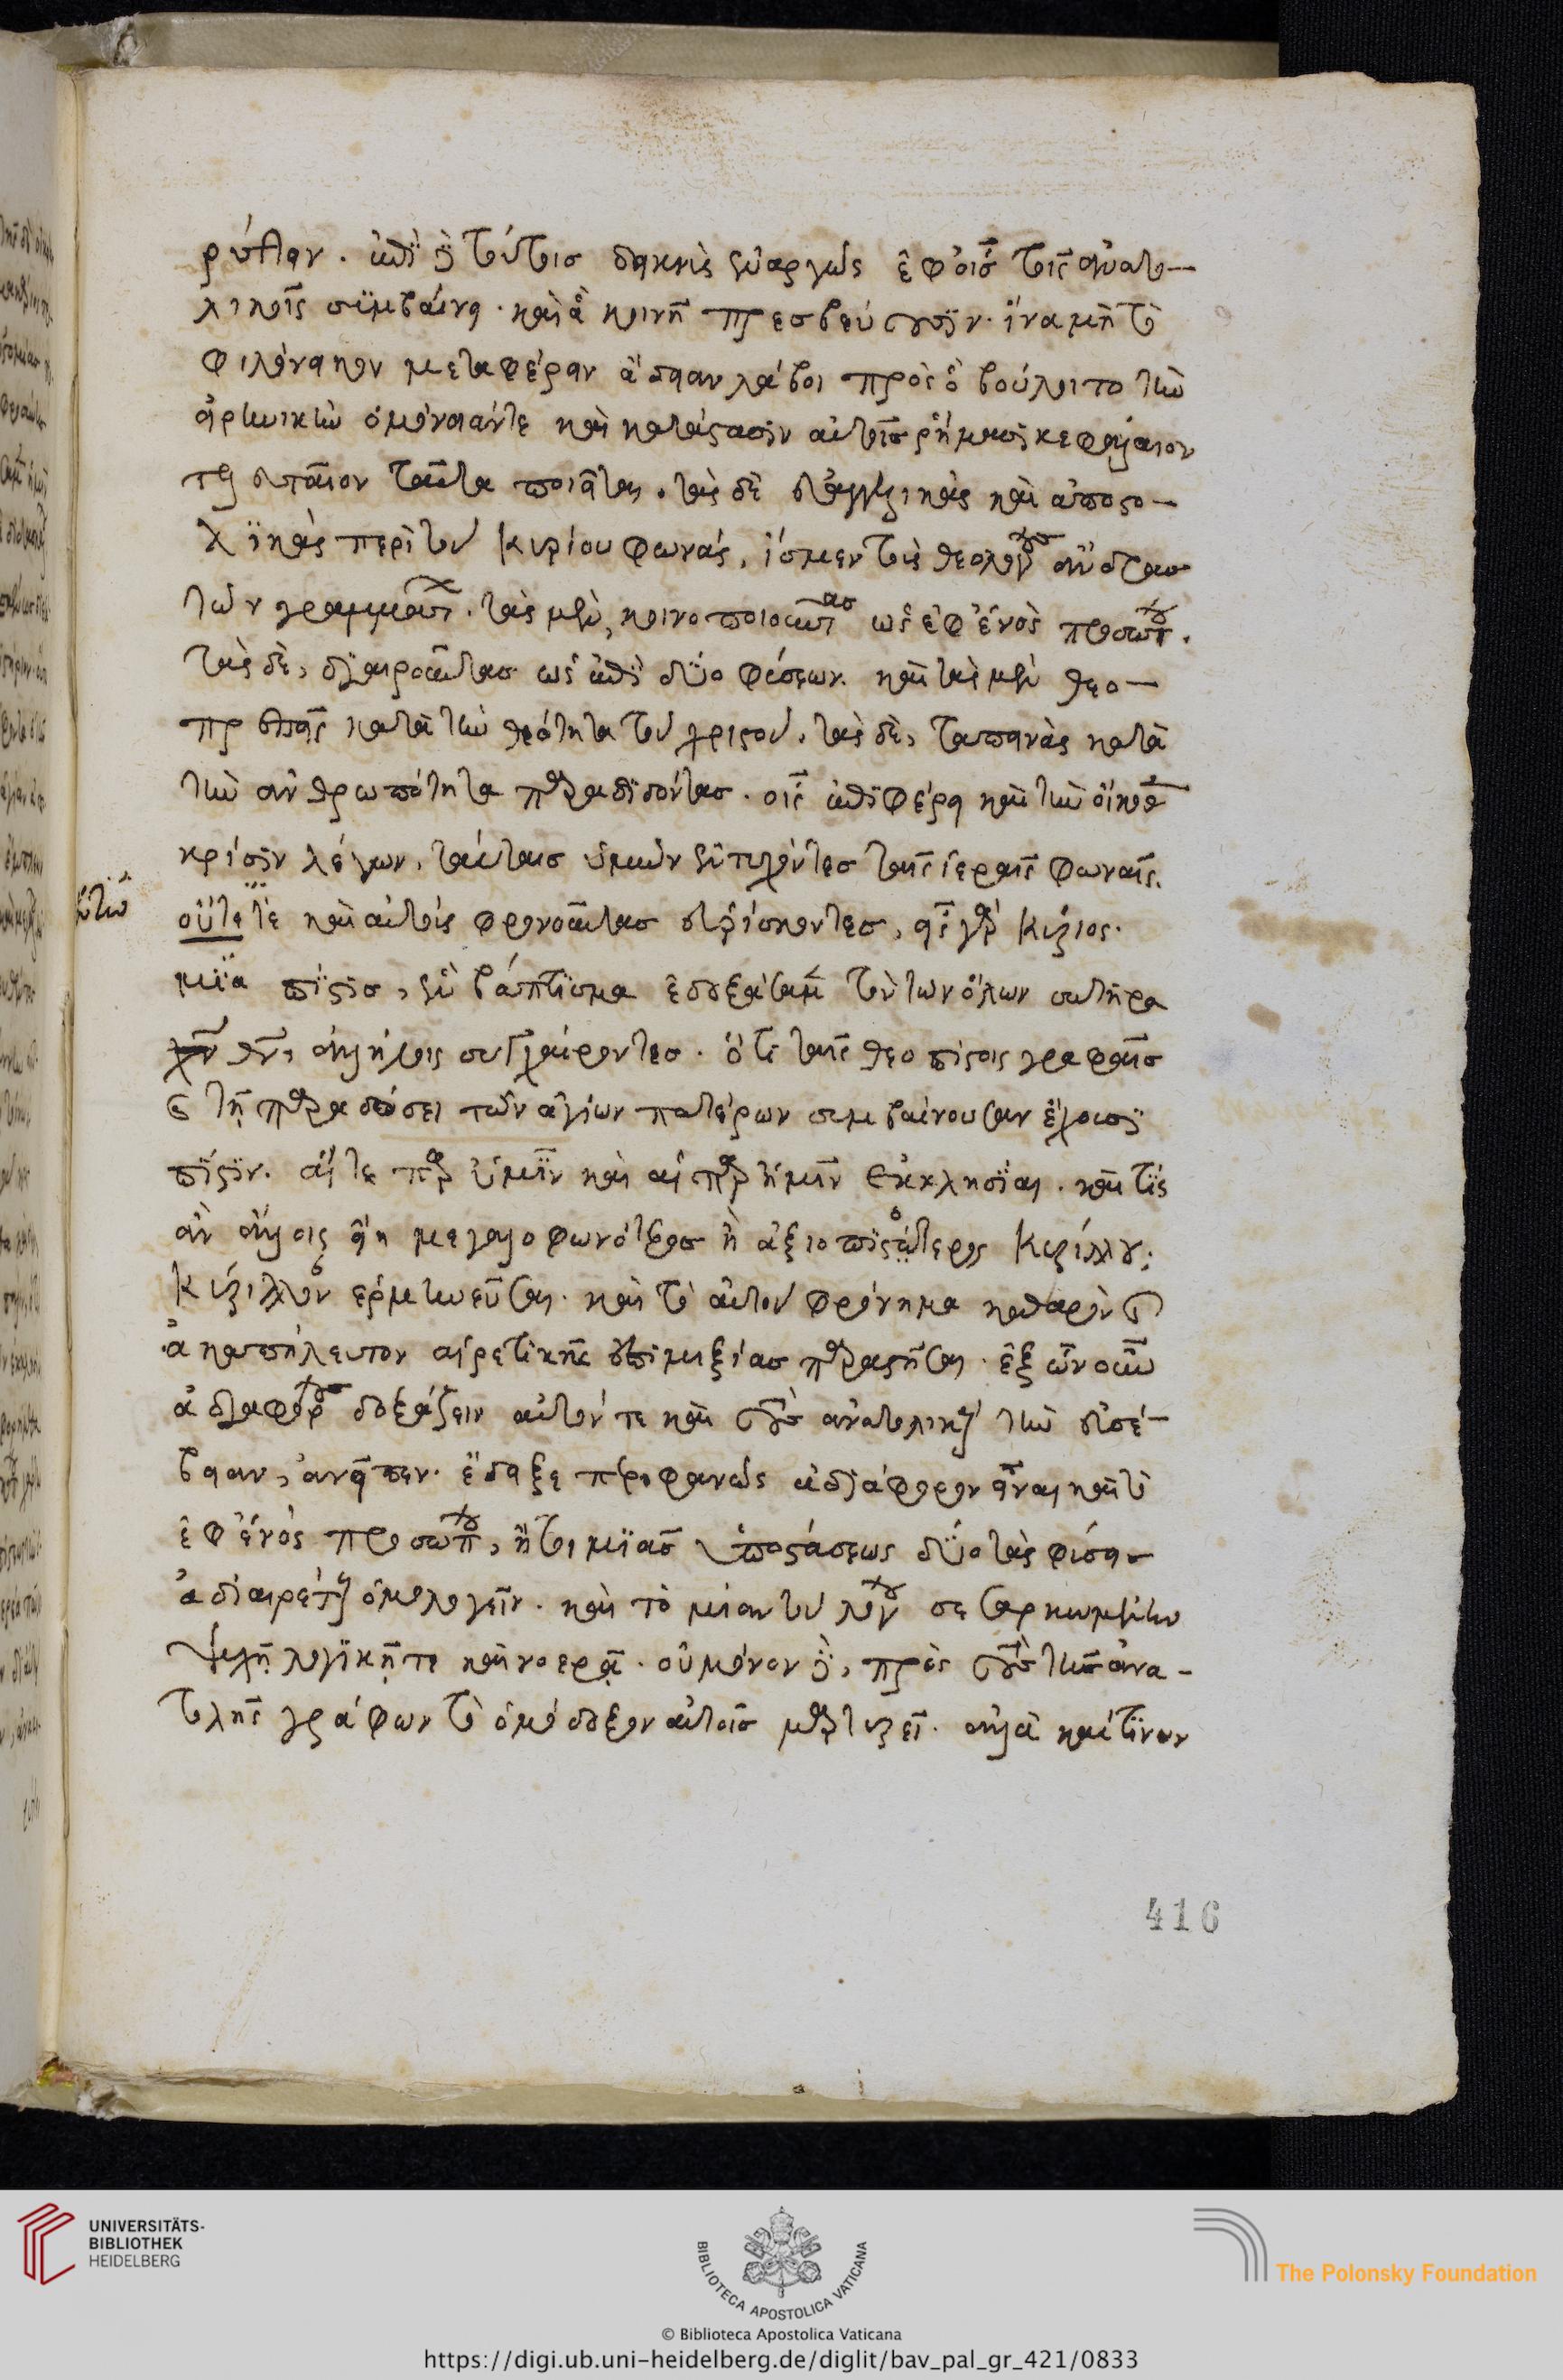 ρύθην. ἐπὶ γὰρ τούτοις δεικνὺς ἐναργῶς ἐφ' οἷς τοῖς ἀνατο-
λικοῖς συμβαίνει. καὶ ἃ κοινῇ πρεσβεύουσιν. ἵνα μὴ τὸ
φιλόνεικον μεταφέρειν ἄδειαν λάβοι πρὸς ὃ βούλοιτο τὴν
εἰρηνικὴν ὁμόνοιάν τε καὶ κατάστασιν αὐτοῖς ῥήμασι κεφάλαιον
τελευταῖον ταῦτα ποιεῖται. τὰς δὲ εὐαγγελικὰς καὶ ἀποστο-
λικὰς περὶ τοῦ κυρίου φωνάς, ἴσμεν τοὺς θεολόγους ἄνδρας
τῶν γραμμάτων. τὰς μὲν, κοινοποιοῦντας ὡς ἐφ' ἑνὸς προσώπου.
τὰς δὲ, διαιροῦντας ὡς ἐπὶ δύο φύσεων. καὶ τὰς μὲν θεο-
πρεπεῖς κατὰ τὴν θεότητα τοῦ χριστοῦ. τὰς δὲ, ταπεινὰς κατὰ
τὴν ἀνθρωπότητα παραδιδόντας. οἷς ἐπιφέρει καὶ τὴν οἰκείαν
κρίσιν λέγων, ταύταις ὑμῶν ἐντυχόντες ταῖς ἱεραῖς φωναῖς.
οὕτε τε καὶ αὐτοὺς φρονοῦντας εὑρίσκοντες, εἷς γὰρ κύριος.
μία πίστις, ἓν βάπτισμα ἐδοξάσαμεν τὸν τῶν ὅλων σωτῆρα
χν θν, ἀλλήλοις συγχαίροντες. ὅτι ταῖς θεοπνεύστοις γραφαῖς
καὶ τῇ παραδόσει τῶν ἁγίων πατέρων συμβαίνουσαν ἔχουσι
πίστιν. αἵ τε παρ' ὑμῖν καὶ αἱ παρ' ἡμῖν ἐκκλησίαι. καὶ τίς
ἂν ἄλλος εἴη μεγαλοφωνότερος ἢ ἀξιοπιστότερος κυρίλλου;
κύριλλον ἑρμηνεῦσαι. καὶ τὸ αὐτοῦ φρόνημα καθαρὸν καὶ
ἀκαπήλευτον αἱρετικῆς ἐπιμιξίας παραστῆσαι. ἐξ ὧν οὖν
ἀδιαφόρους δοξάζειν αὐτόν τε καὶ τοὺς ἀνατολικοὺς τὴν εὐσέ-
βειαν, ἀνεῖπεν. ἔδειξε προφανῶς ἀδιάφορον εἶναι καὶ τὸ
ἐφ' ἑνὸς προσώπου, ἤτοι μιᾶς ὑποστάσεως δύο τὰς φύσεις
ἀδιαιρέτους ὁμολογεῖν. καὶ τὸ μίαν τοῦ λόγου σεσαρκωμένην
ψυχῇ λογικῇ τε καὶ νοερᾷ. οὐ μόνον γὰρ, πρὸς τοὺς τῆς ἀνα-
τολῆς γράφων τὸ ὁμόδοξον αὐτοῖς μαρτυρεῖ. ἀλλὰ καί τινων
416
UNIVERSITÄTS-
BIBLIOTHEK
HEIDELBERG
BIBLIOTECA APOSTOLICA VATICANA
The Polonsky Foundation
© Biblioteca Apostolica Vaticana
https://digi.ub.uni-heidelberg.de/diglit/bav_pal_gr_421/0833